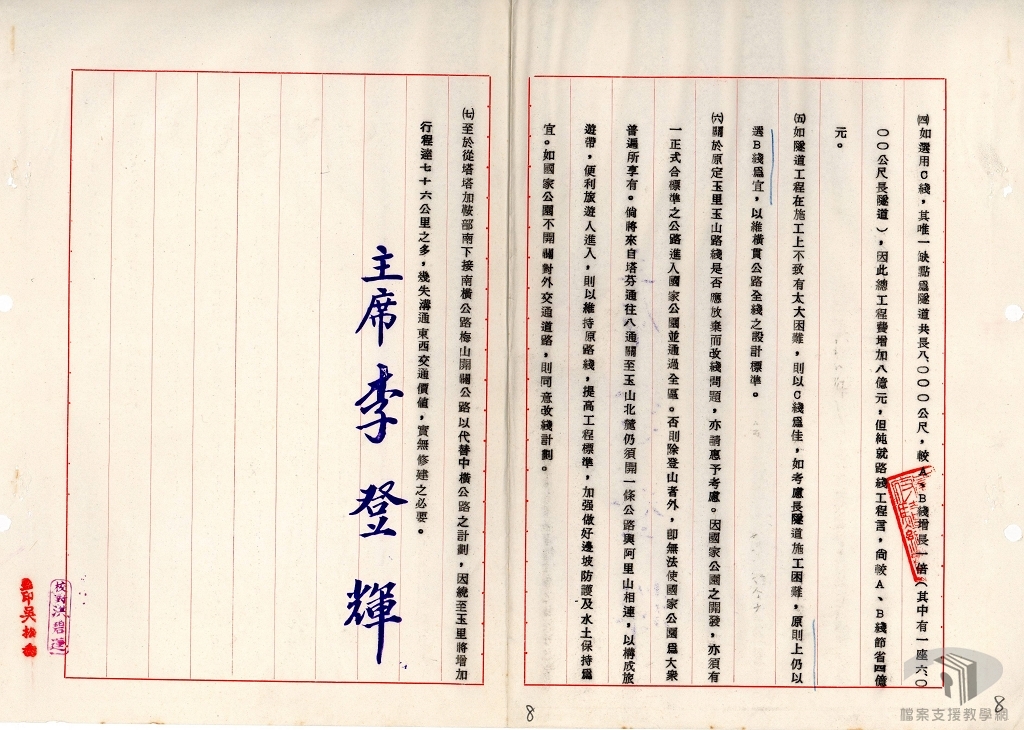 ㈣如選用C綫，其唯一缺點爲隧道共長八、〇〇〇公尺，較A、B綫增長一倍（其中有一座六、〇
〇〇公尺長隧道），因此總工程費增加八億元，但純就路綫工程言，尚較A、B綫節省四億
元。
㈤如隧道工程在施工上不致有太大困難，則以C綫爲佳，如考慮長隧道施工困難，原則上仍以
選B綫爲宜，以維橫貫公路全綫之設計標準。
㈥關於原定玉里玉山路綫是否應放棄而改綫問題，亦請惠予考慮。因國家公園之開發，亦須有
一正式合標準之公路進入國家公園並通過全區。否則除登山者外，卽無法使國家公園爲大衆
普遍所享有。倘將來自塔芬通往八通關至玉山北麓仍須開一條公路與阿里山相連，以構成旅
遊帶，便利旅遊人進入，則以維持原路綫，提高工程標準，加强做好邊坡防護及水土保持爲
宜。如國家公園不開闢對外交通道路，則同意改綫計劃。
㈦至於從塔塔加鞍部南下接南橫公路梅山開闢公路以代替中橫公路之計劃，因繞至玉里將增加
行程達七十六公里之多，幾失溝通東西交通價値，實無修建之必要。
主席李登輝
校對洪碧蓮
監印吳松
8
8
檔案支援教學網